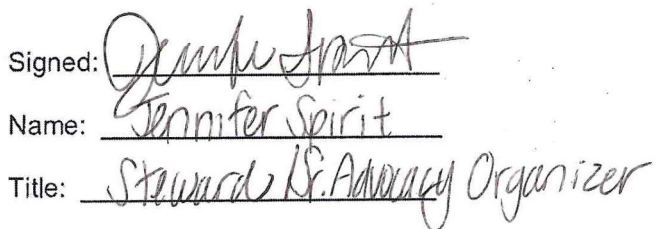 Signed: Jennifer Spirit
Name: Jennifer Spirit
Title: Steward / Sr. Advocacy Organizer